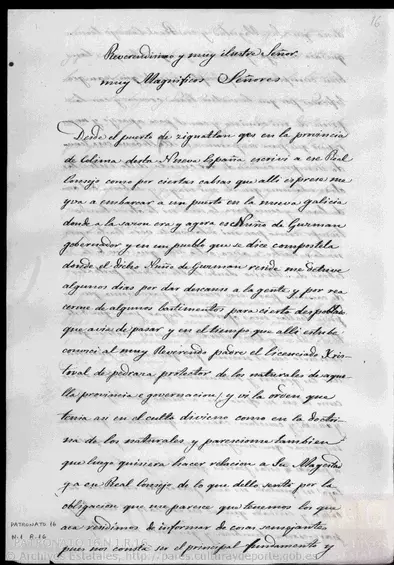 16
Reverendisimo y muy ilustre Señor
muy Magnificos Señores
Desde el puerto de ziguatlan ques en la provincia
de Colima desta Nueva España escrivi a ese Real
Consejo como por ciertas cabsas que alli exprese me
yva a embarcar a un puerto en la nueva galicia
donde a la sazon era y agora es Nuño de Guzman
gobernador y en un pueblo que se dice compostela
donde el dicho Nuño de Guzman rende me detuve
algunos dias por dar descanso a la gente y por rea
corme de algunos bastimentos para cierto despoblado
que avia de pasar y en el tiempo que alli estube
conoci al muy Reverendo padre el licenciado Xris
toval de pedraza protector de los naturales de aque
lla provincia e governacion, y vi la orden que
tenia asi en el culto divieno como en la doctri
na de los naturales y pareciome tambien
que luego quisiera hacer relacion a Su Magestad
y a su Real Consejo de lo que dello sentia por la
obligacion que me parece que tenemos los que
aca venimos de informar de cosas semejantes
pues nos consta ser el principal fundamento y
PATRONATO 16
N.1 R.16
PATRONATO,16,N.1,R.16
© Archivos Estatales, http://pares.culturaydeporte.gob.es